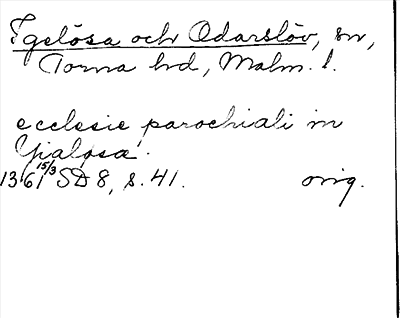 Igelösa och Odarslöv, sn,
Torna hd, Malm. l.
ecclesie parochiali in
Yialøsa.
1361 15/3 SD 8, s. 41. orig.